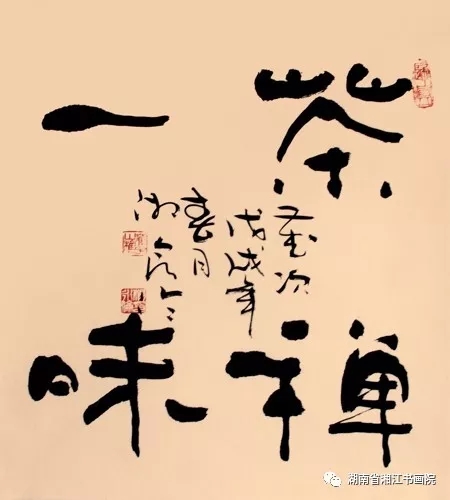 茶禅
一味
歲次
戊戌年
春月
湖南省湘江书画院